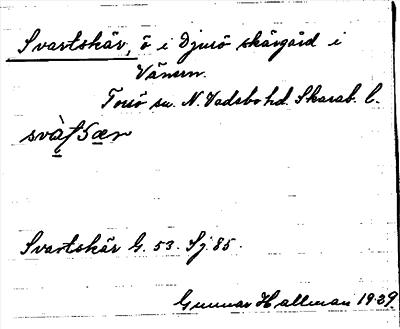 Svartskär, ö i Djurö skärgård i
Vänern.
Torsö sn. N. Vadsbo hd. Skarab. l.
Svartskär G. 53. Sj. 85.
Gunnar Hallman 1939